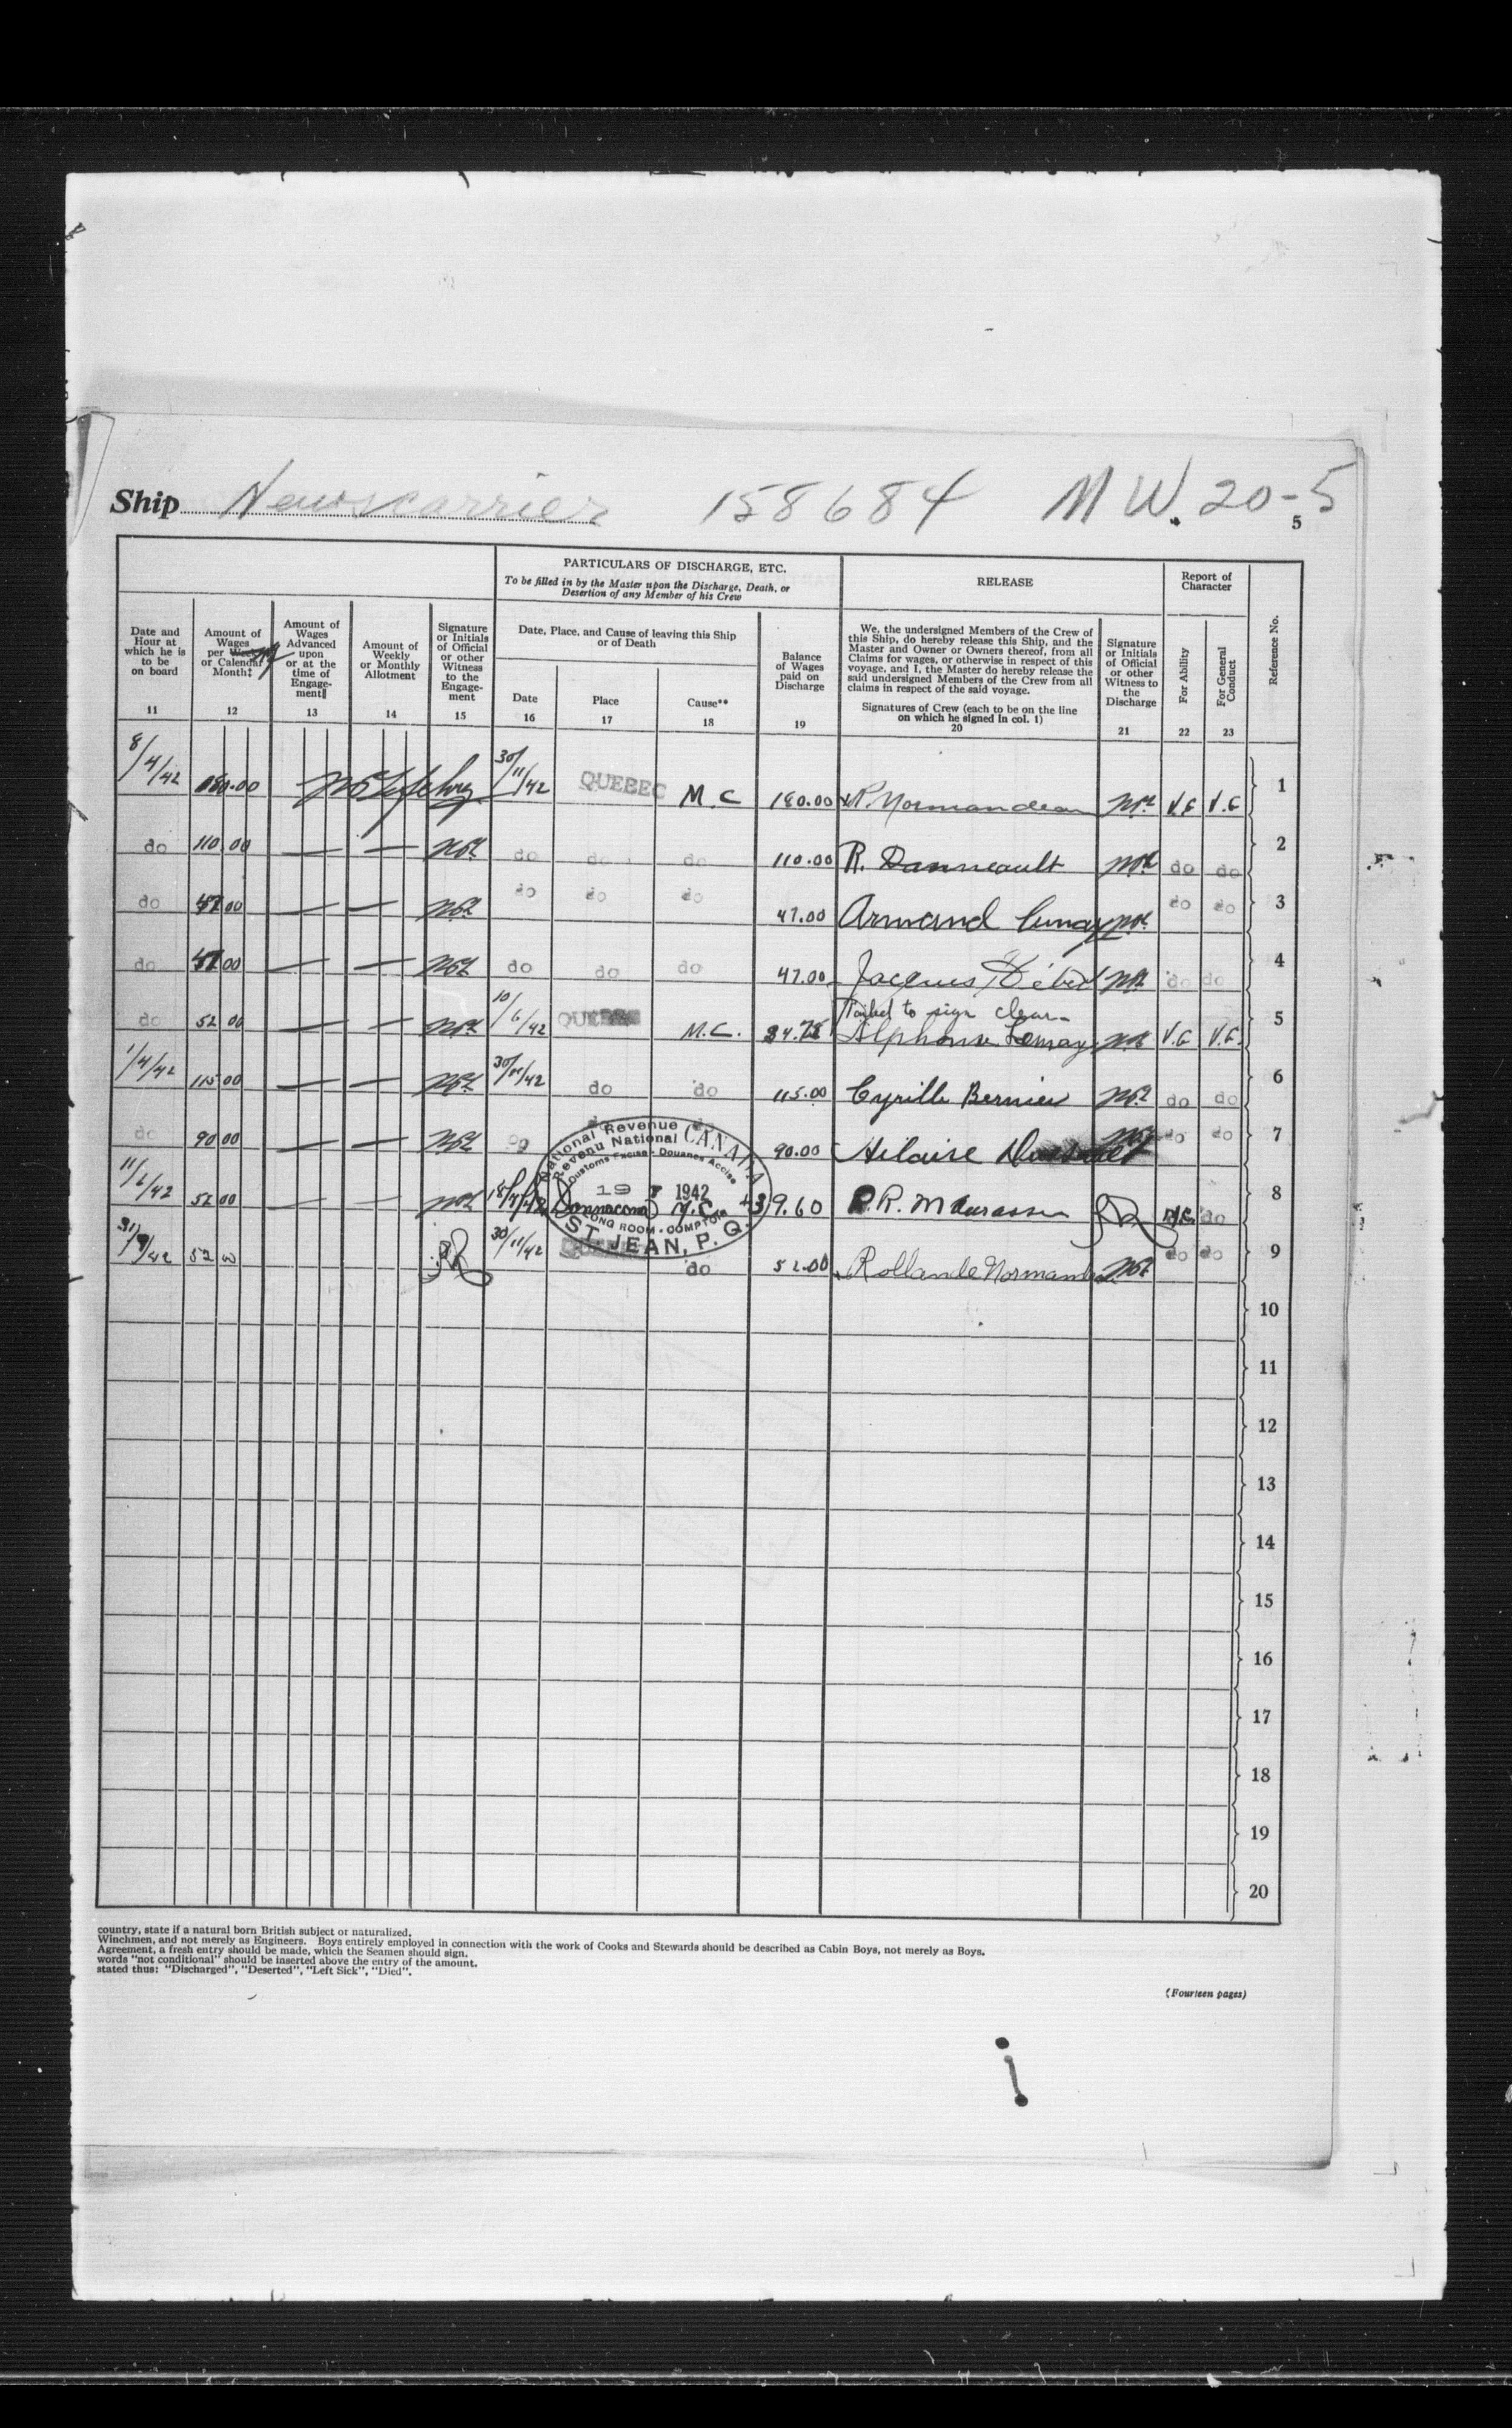 Ship Newscarrier 158684 M W. 20-5
5
PARTICULARS OF DISCHARGE, ETC.
To be filled in by the Master upon the Discharge, Death, or
Desertion of any Member of his Crew
RELEASE
Report of
Character
Reference No.
Date and
Hour at
which he is
to be
on board
11
Amount of
Wages
per Week
or Calendar
Month‡
12
Amount of
Wages
Advanced
upon
or at the
time of
Engage-
ment‖
13
Amount of
Weekly
or Monthly
Allotment
14
Signature
or Initials
of Official
or other
Witness
to the
Engage-
ment
15
Date, Place, and Cause of leaving this Ship
or of Death
Date
16
Place
17
Cause**
18
Balance
of Wages
paid on
Discharge
19
We, the undersigned Members of the Crew of
this Ship, do hereby release this Ship, and the
Master and Owner or Owners thereof, from all
Claims for wages, or otherwise in respect of this
voyage, and I, the Master do hereby release the
said undersigned Members of the Crew from all
claims in respect of the said voyage.
Signatures of Crew (each to be on the line
on which he signed in col. 1)
20
Signature
or Initials
of Official
or other
Witness to
the
Discharge
21
For Ability
22
For General
Conduct
23
8/4/42 180.00 30/11/42 QUEBEC M.C 180.00 R. Normandeau V.G V.G 1
do 110.00 — — do do do 110.00 R. Danneault do do 2
do 47 00 — — do do do 47.00 Armand do do 3
do 47 00 — — do do do 47.00 Jacques do do 4
Failed to sign clear
do 52 00 — — 10/6/42 QUEBEC M.C. 34.75 Alphonse Lemay V.G V.G. 5
1/4/42 115 00 — — 30/11/42 do do 115.00 Cyrille Bernier do do 6
do 90 00 — — do 90.00 Hilaire do do 7
11/6/42 52 00 — — Donnacona M.C. 39.60 do 8
National Revenue CANADA
Revenu National
Customs Excise - Douanes Accise
19 1942
LONG ROOM - COMPTOIR
ST. JEAN, P. Q.
52 00 30/11/42 QUEBEC do 52.00 Rollande Normandeau do do 9
10
11
12
13
14
15
16
17
18
19
20
country, state if a natural born British subject or naturalized.
Winchmen, and not merely as Engineers. Boys entirely employed in connection with the work of Cooks and Stewards should be described as Cabin Boys, not merely as Boys.
Agreement, a fresh entry should be made, which the Seamen should sign.
words "not conditional" should be inserted above the entry of the amount.
stated thus: "Discharged", "Deserted", "Left Sick", "Died".
(Fourteen pages)